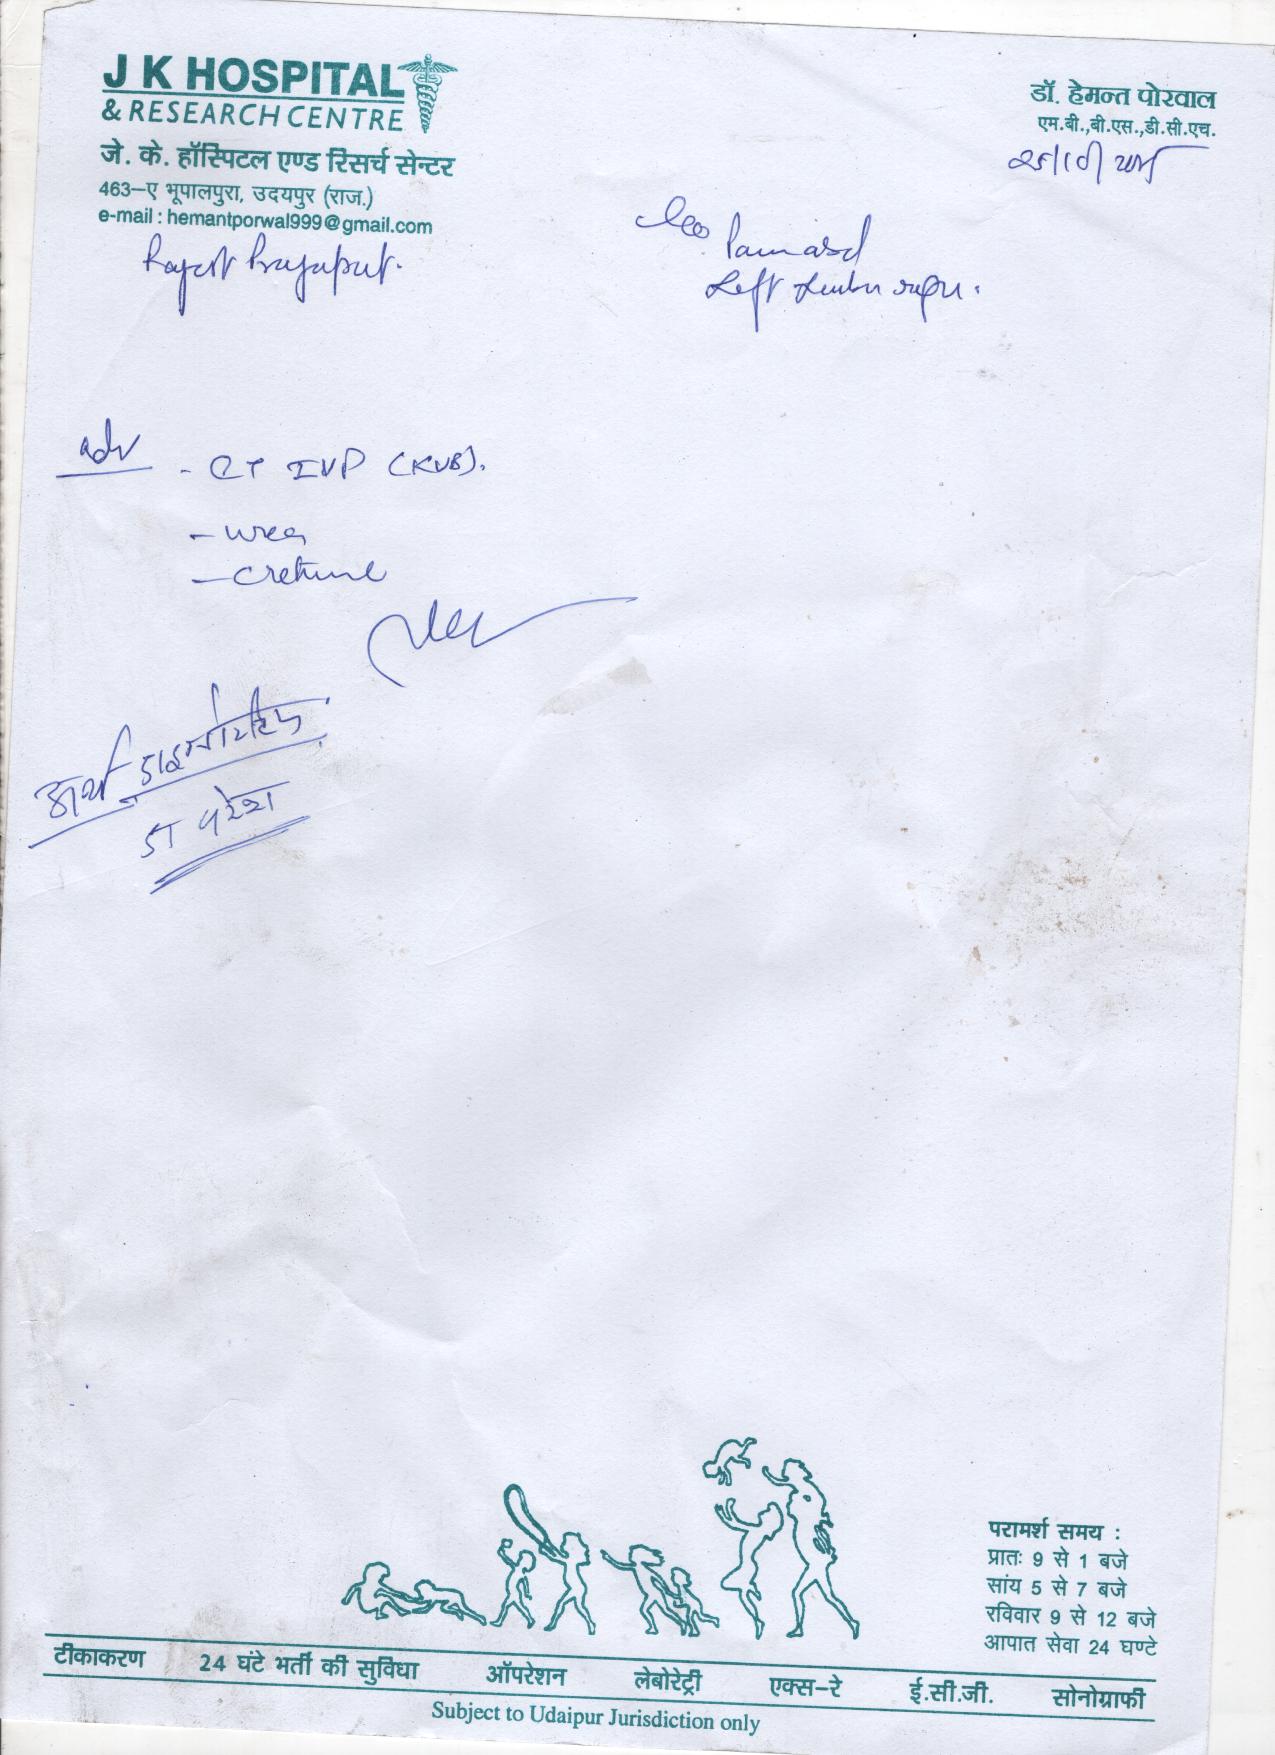 J K HOSPITAL
& RESEARCH CENTRE
जे. के. हॉस्पिटल एण्ड रिसर्च सेन्टर
463–ए भूपालपुरा, उदयपुर (राज.)
e-mail : hemantporwal999@gmail.com
डॉ. हेमन्त पोरवाल
एम.बी.,बी.एस.,डी.सी.एच.
Left
adv - CT IVP (KUB).
- urea
परामर्श समय :
प्रातः 9 से 1 बजे
सांय 5 से 7 बजे
रविवार 9 से 12 बजे
आपात सेवा 24 घण्टे
टीकाकरण 24 घंटे भर्ती की सुविधा ऑपरेशन लेबोरेट्री एक्स–रे ई.सी.जी. सोनोग्राफी
Subject to Udaipur Jurisdiction only